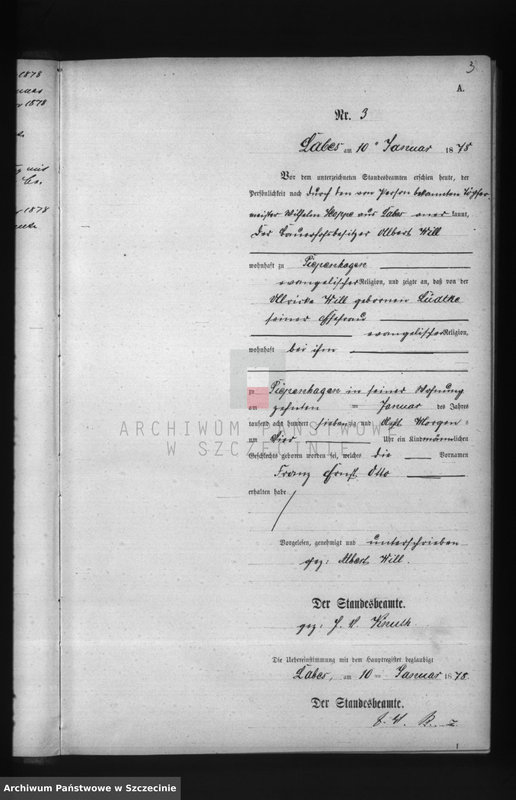 1878
1878
1878
3.
A.
Nr. 3
Labes am 10ⁿ Januar 1878
Vor dem unterzeichneten Standesbeamten erschien heute, der
Persönlichkeit nach durch den von Person bekannten Töpfer-
meister Wilhelm Heppe aus Labes aner kannt,
der Bauerhofsbesitzer Albert Will
wohnhaft zu Piepenhagen
evangelischer Religion, und zeigte an, daß von der
Ulricke Will geborenen Lüdtke
seiner Ehefrau
evangelischer Religion,
wohnhaft bei ihm
zu Piepenhagen in seiner Wohnung
am zehnten Januar des Jahres
tausend acht hundert siebenzig und Acht Morgen-
um Vier Uhr ein Kind männlichen
Geschlechts geboren worden sei, welches die Vornamen
Franz Ernst Otto
erhalten habe
ARCHIWUM PAŃSTWOWE
W SZCZECINIE
Vorgelesen, genehmigt und unterschrieben
gez: Albert Will.
Der Standesbeamte.
gez: J. V.
Die Uebereinstimmung mit dem Hauptregister beglaubigt
Labes, am 10 Januar 1878.
Der Standesbeamte.
J. V.
Archiwum Państwowe w Szczecinie